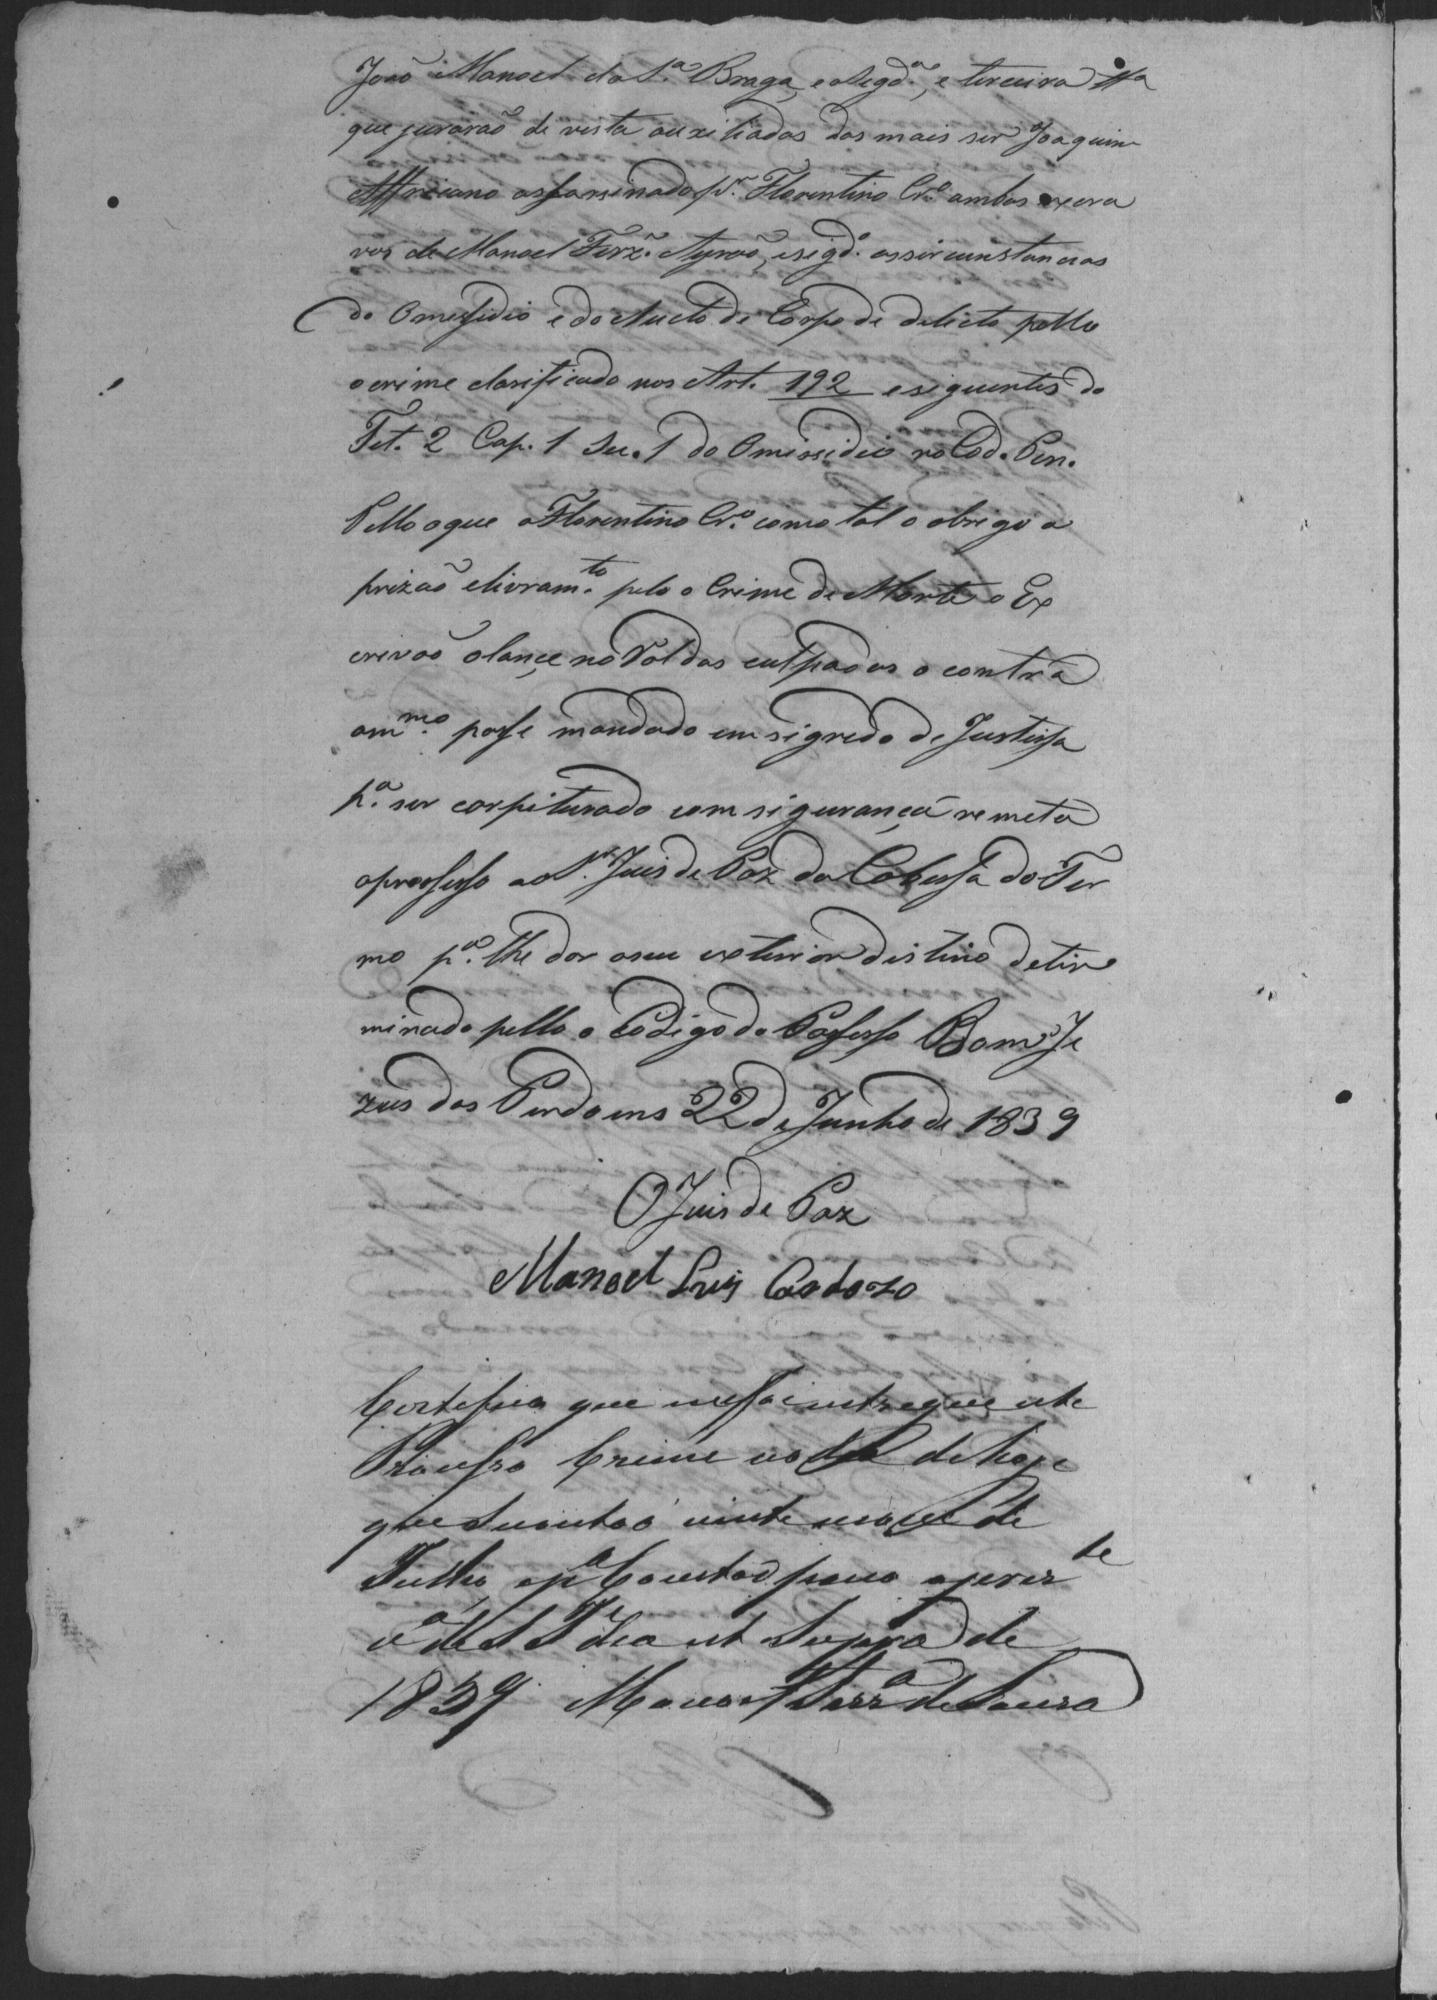 João Manoel da S.ª Braga, e a segd.ª, e terceira tt.ª
que jurarão de vista auxiliadas das mais ser Joaquim
Affricano assassinado p.r Florentino Cr.º ambos escra
vos de Manoel Ferz.ª Ayroó, e sigd.º as sircunstancias
do Omessidio e do Aucto de Corpo de delicto pello
o crime clasificado nos Art. 192 e siguentes do
Tit. 2 Cap. 1 Sec. 1 do Omissidio no Cod. Pen.
Pello o que o Florentino Cr.º como tal o obrigo a
prizaõ e livram.to pelo o Crime de Morte o Ex
crivaõ o lançe no Rol dos culpados e contra
o m.mo passe mandado em sigredo de Justissa
p.ª ser corpiturado com sigurança remeta
o prossesso ao S.r Juis de Paz da Cabessa do Ter
mo p.ª lhe dar o seu exterior distino detir
minado pello o Codigo do Prossesso Bom Je
zus dos Perdoens 22 de Junho de 1839
O Juis de Paz
Manoel Luis Cardozo
Certifico que me foi entregue este
Processo Crime no dia de hoje
que se contaõ vinte nove de
Julho, e p.ª Constar passo a prez.te
v.ª de S. Dia ut Supra de
1839 Manoel Ferr.ª de Souza